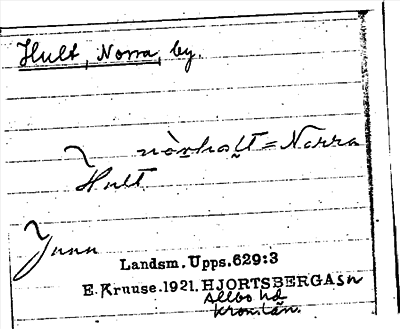 Hult, Norra, by.
nòrhalt = Norra
Hult
Landsm. Upps. 629:3
E. Kruuse. 1921. HJORTSBERGA sn
Allbo hd
Kron. län.